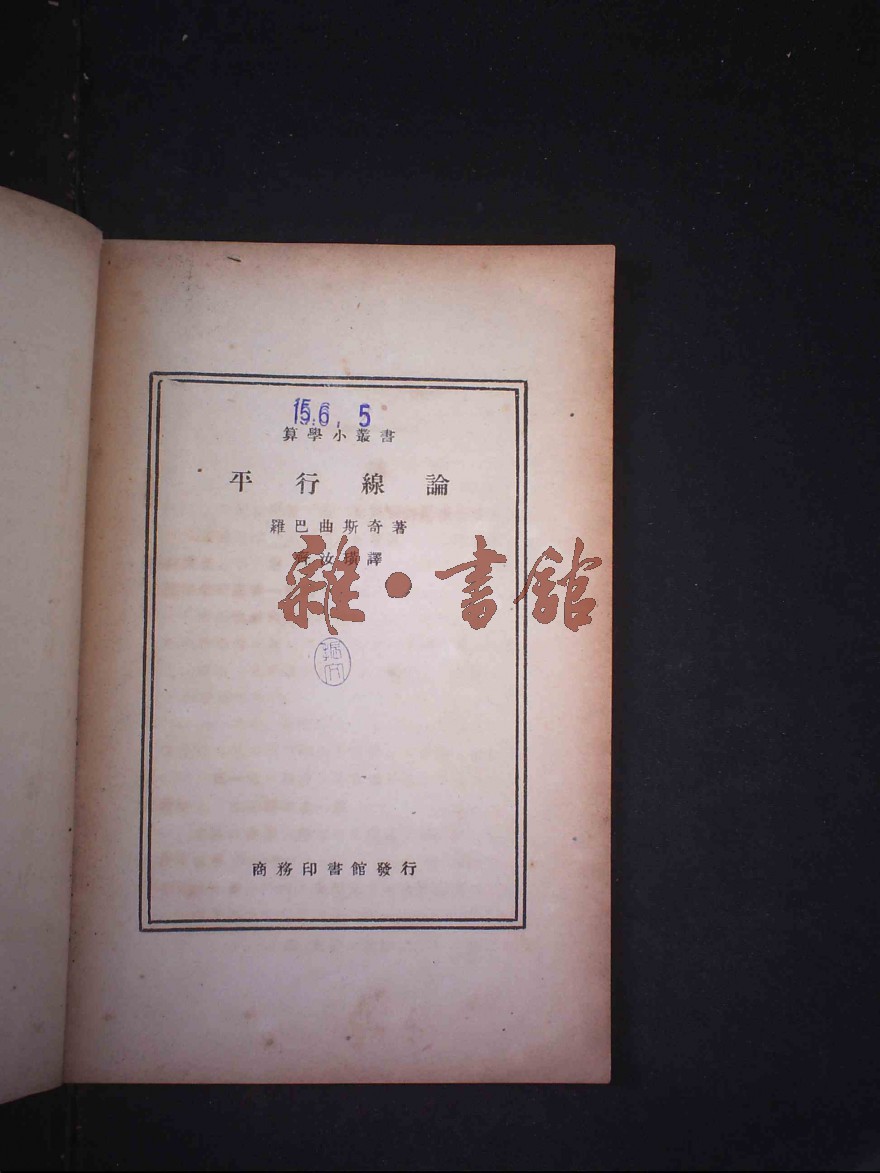 15.6, 5
算學小叢書
平行線論
羅巴曲斯奇著
汝 譯
雜·書館
商務印書館發行